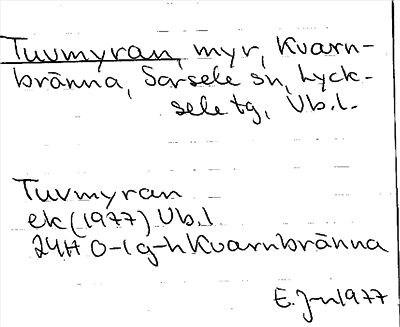 Tuvmyran, myr, Kvarn-
bränna, Sorsele sn, Lyck-
sele tg, Vb.l.
Tuvmyran
ek (1977) Vb.l
24H 0-1 g-h Kvarnbränna
E. J-n 1977